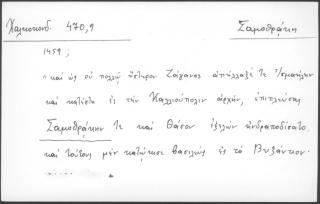 Χαλκοκονδ. 470,9 Σαμοθράκη
1459;
"καὶ ὡς οὐ πολλῷ ὕστερον Ζάγανος ἀπήλλαξέ τε
καὶ κατέστη ἐς τὴν Καλλιούπολιν ἀρχήν, ἐπιπλεύσας
Σαμοθράκην τε καὶ Θάσον ἑξελὼν ἠνδραποδίσατο.
καὶ τούτους μὲν κατῴκισε βασιλεὺς ἐς τὸ Βυζάντιον.